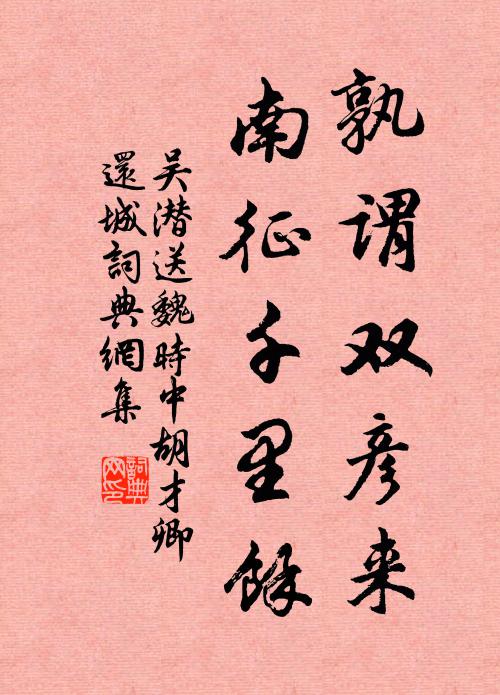 孰谓双彦来
南征千里馀
吴潜送魏時中胡才卿
還城詞典網集
詞典网印